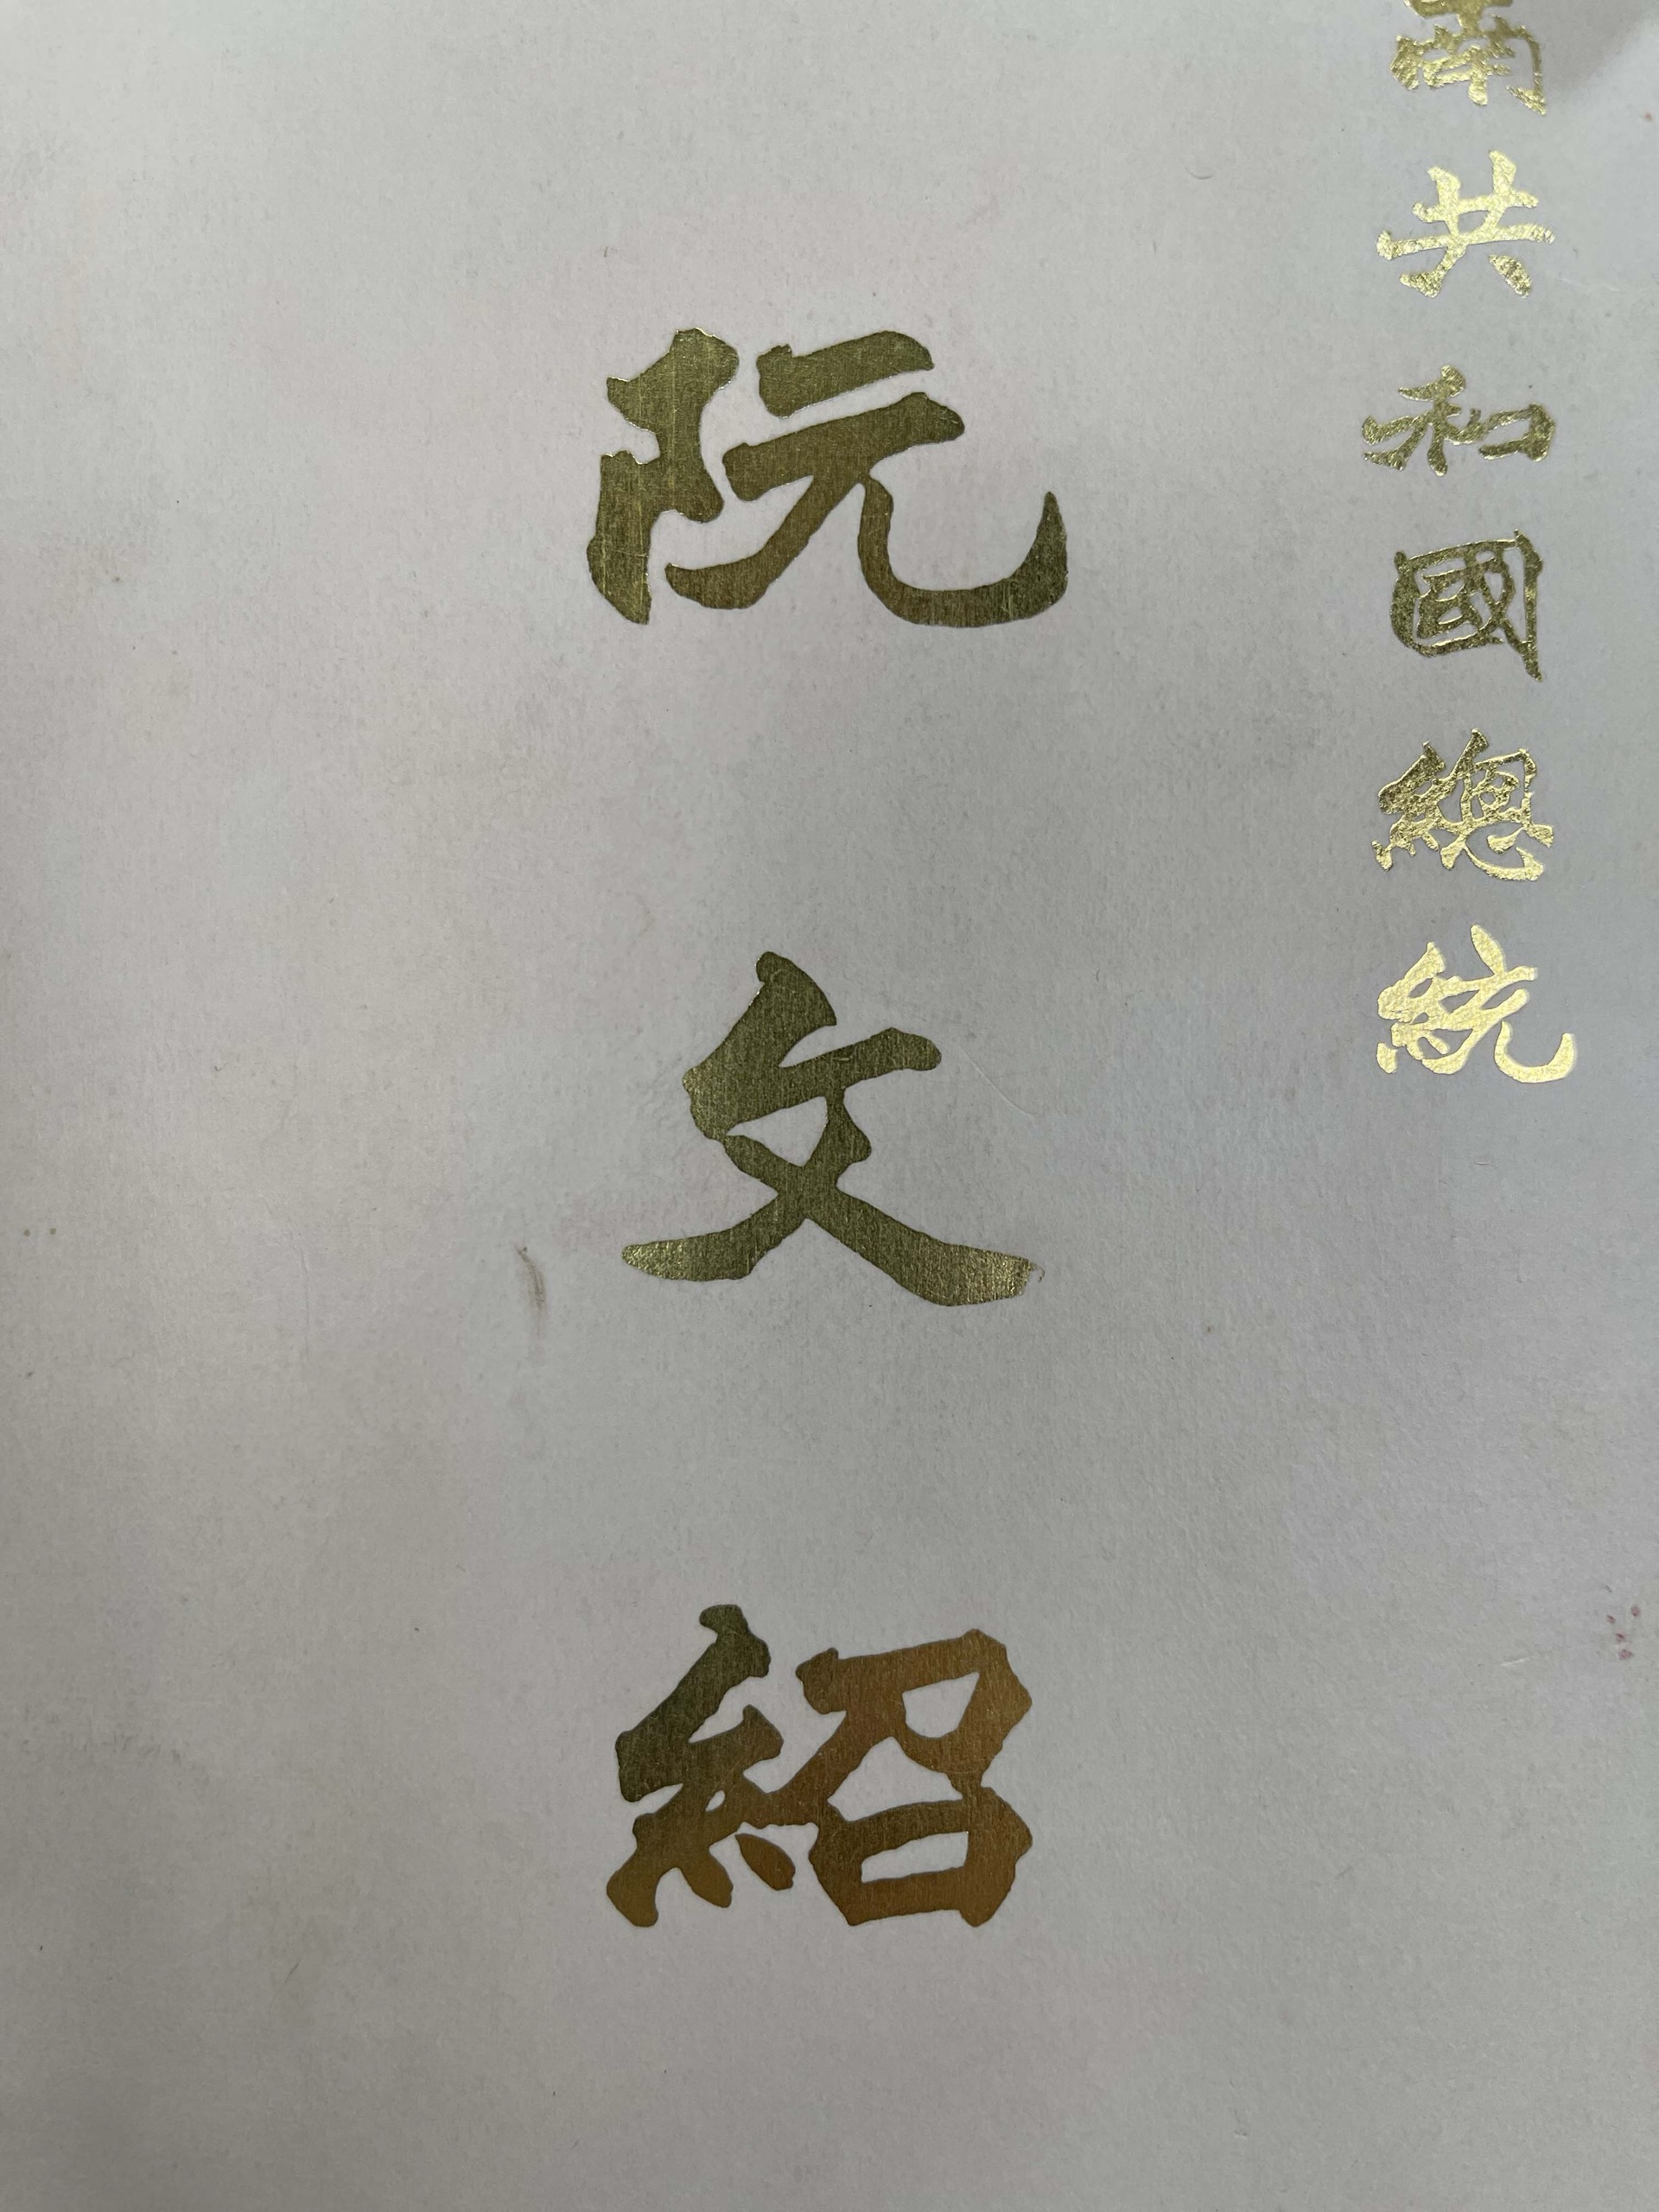 南共和國總統
阮文紹